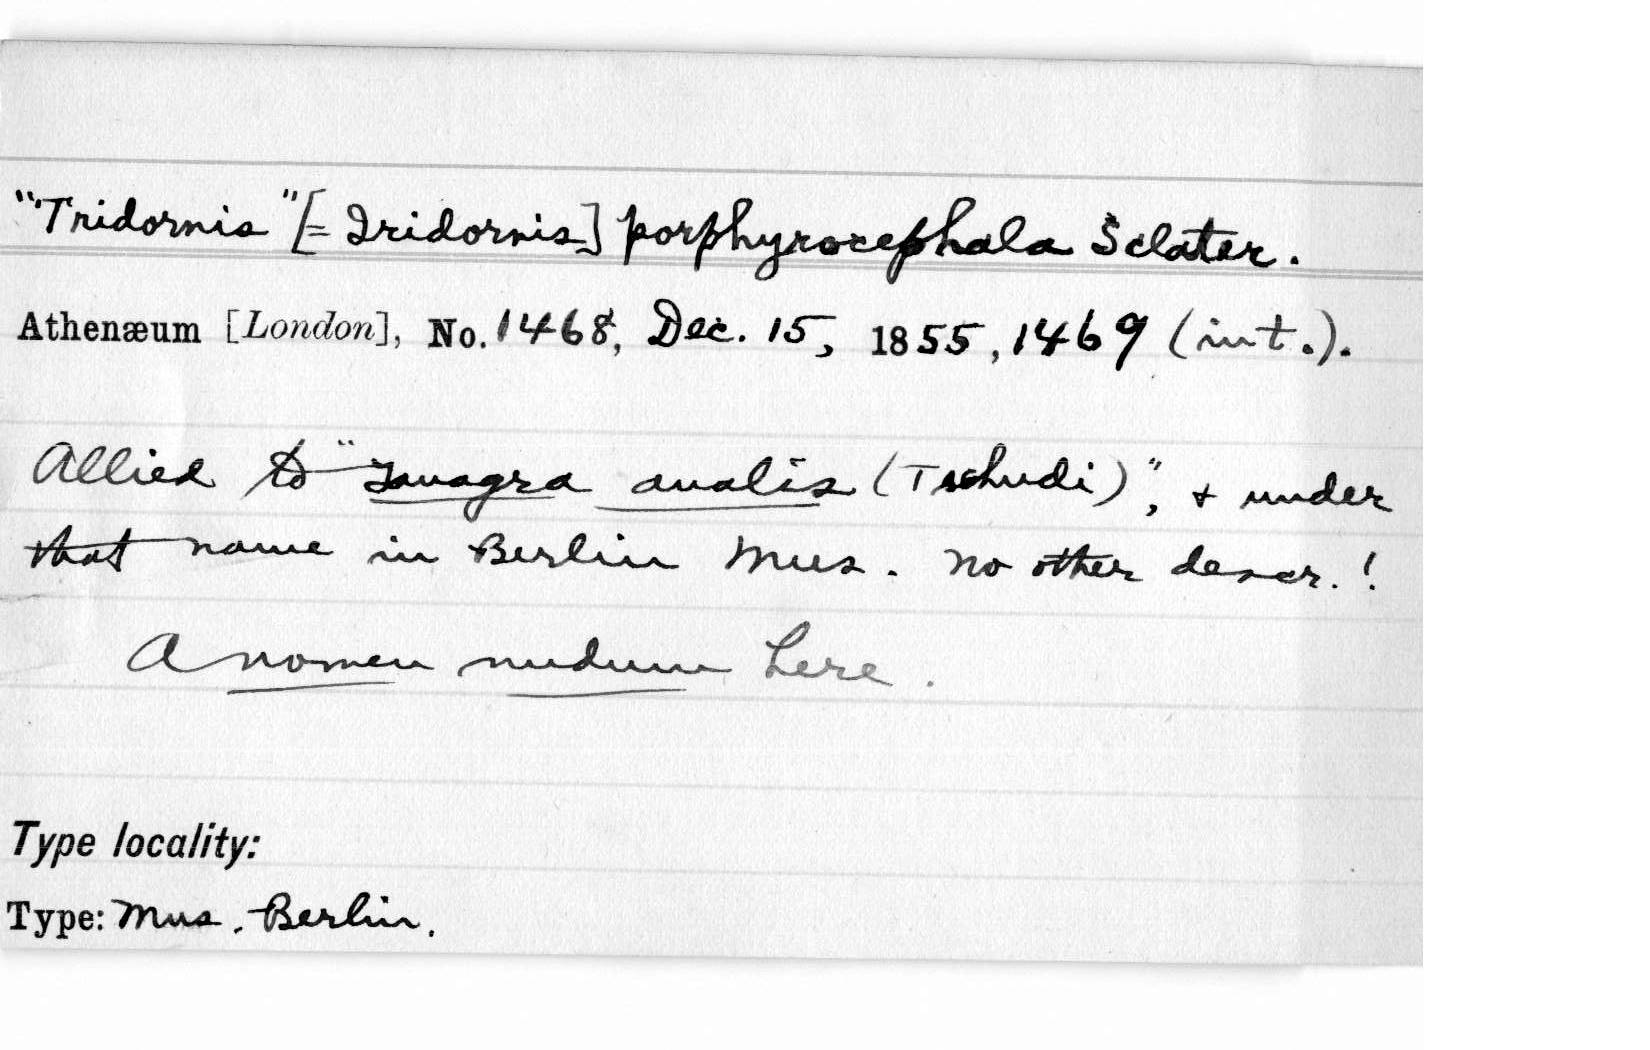 "Tridornis" [= Iridornis] porphyrocephala Sclater.
Athenæum [London], No. 1468, Dec. 15, 1855, 1469 (int.).
Allied to "Tanagra analis (Tschudi)", & under
that name in Berlin Mus. No other descr.!
A nomen nudum here.
Type locality:
Type: Mus. Berlin.